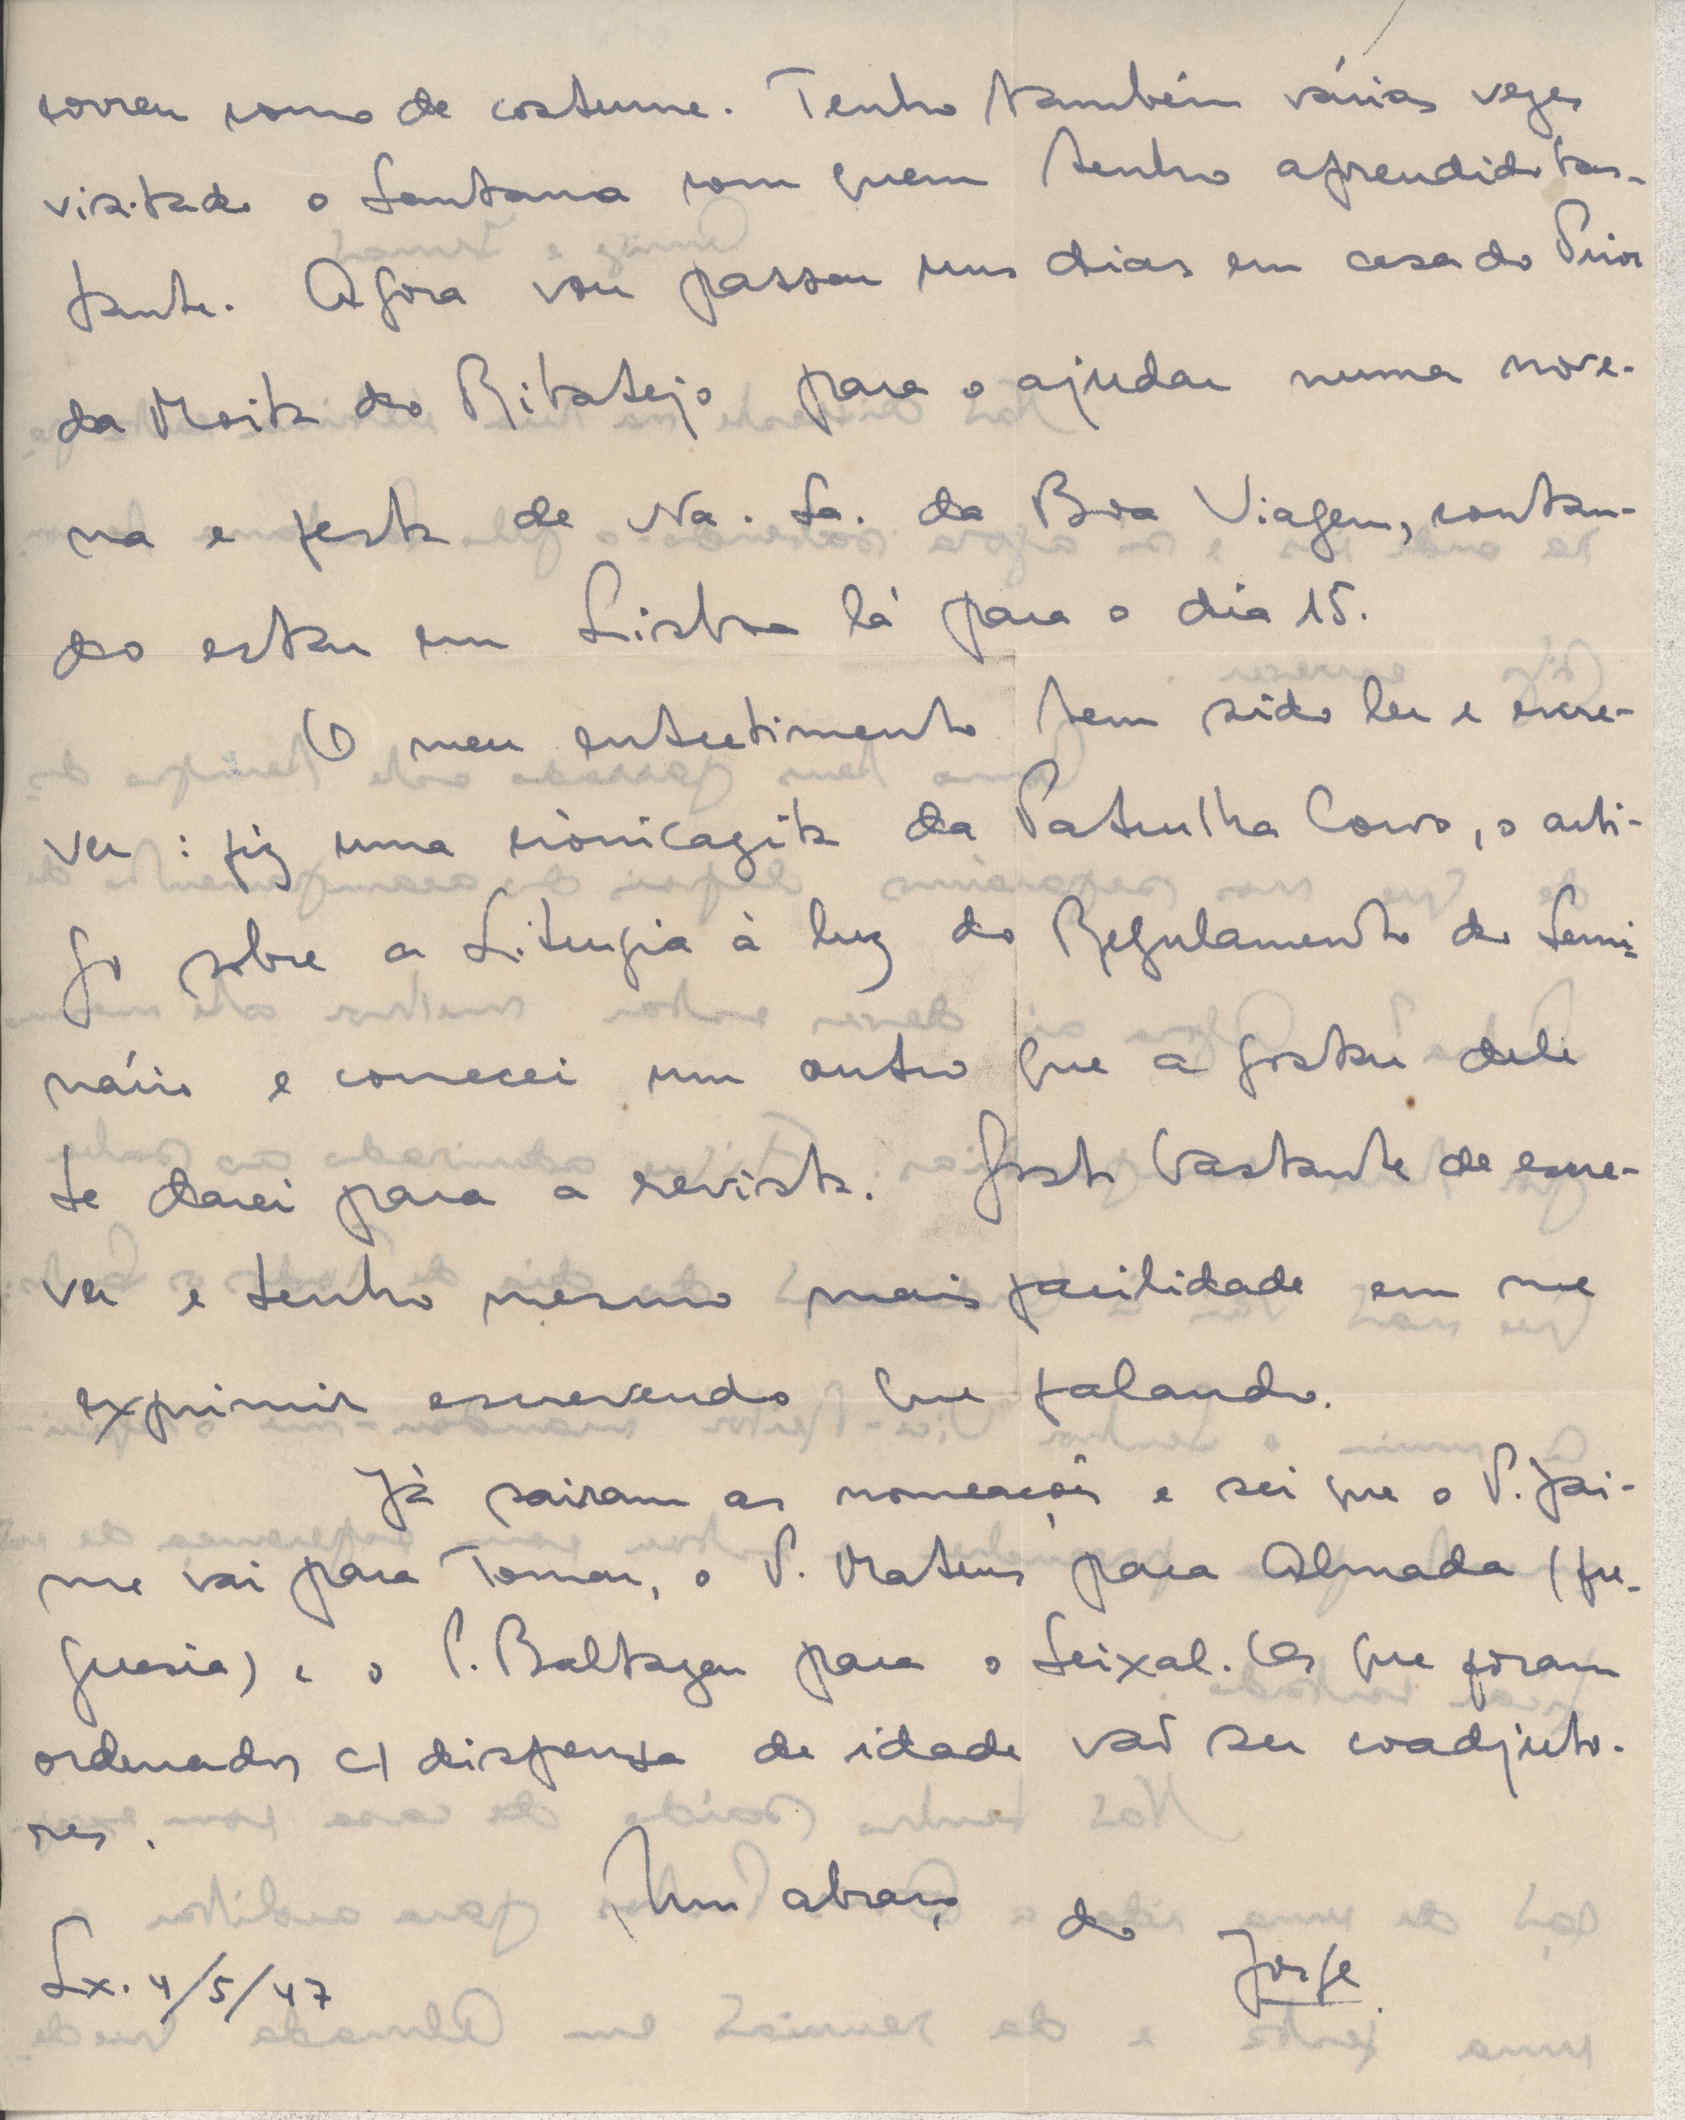 correu como de costume. Tenho também várias vezes
visitado o Santana com quem tenho aprendido bas-
tante. Agora vou passar uns dias em casa do Prior
da Moita do Ribatejo para o ajudar numa nove-
na e festa de Na. Sa. da Boa Viagem, contan-
do estar em Lisboa lá para o dia 15.
O meu entretimento tem sido ler e escre-
ver: fiz uma cronicazita da Patrulha Corvo, o arti-
go sobre a Liturgia à luz do Regulamento do Semi-
nário e comecei um outro que a gostar dele
te darei para a revista. Gosto bastante de escre-
ver e tenho mesmo mais facilidade em me
exprimir escrevendo que falando.
Já sairam as nomeações e sei que o P. Jai-
me vai para Tomar, o P. Mateus para Almada (fre-
guesia) e o P. Baltazar para o Seixal. Os que foram
ordenados c/ dispensa de idade vão ser coadjuto-
res.
Um abraço do Jorge.
Lx. 4/5/47